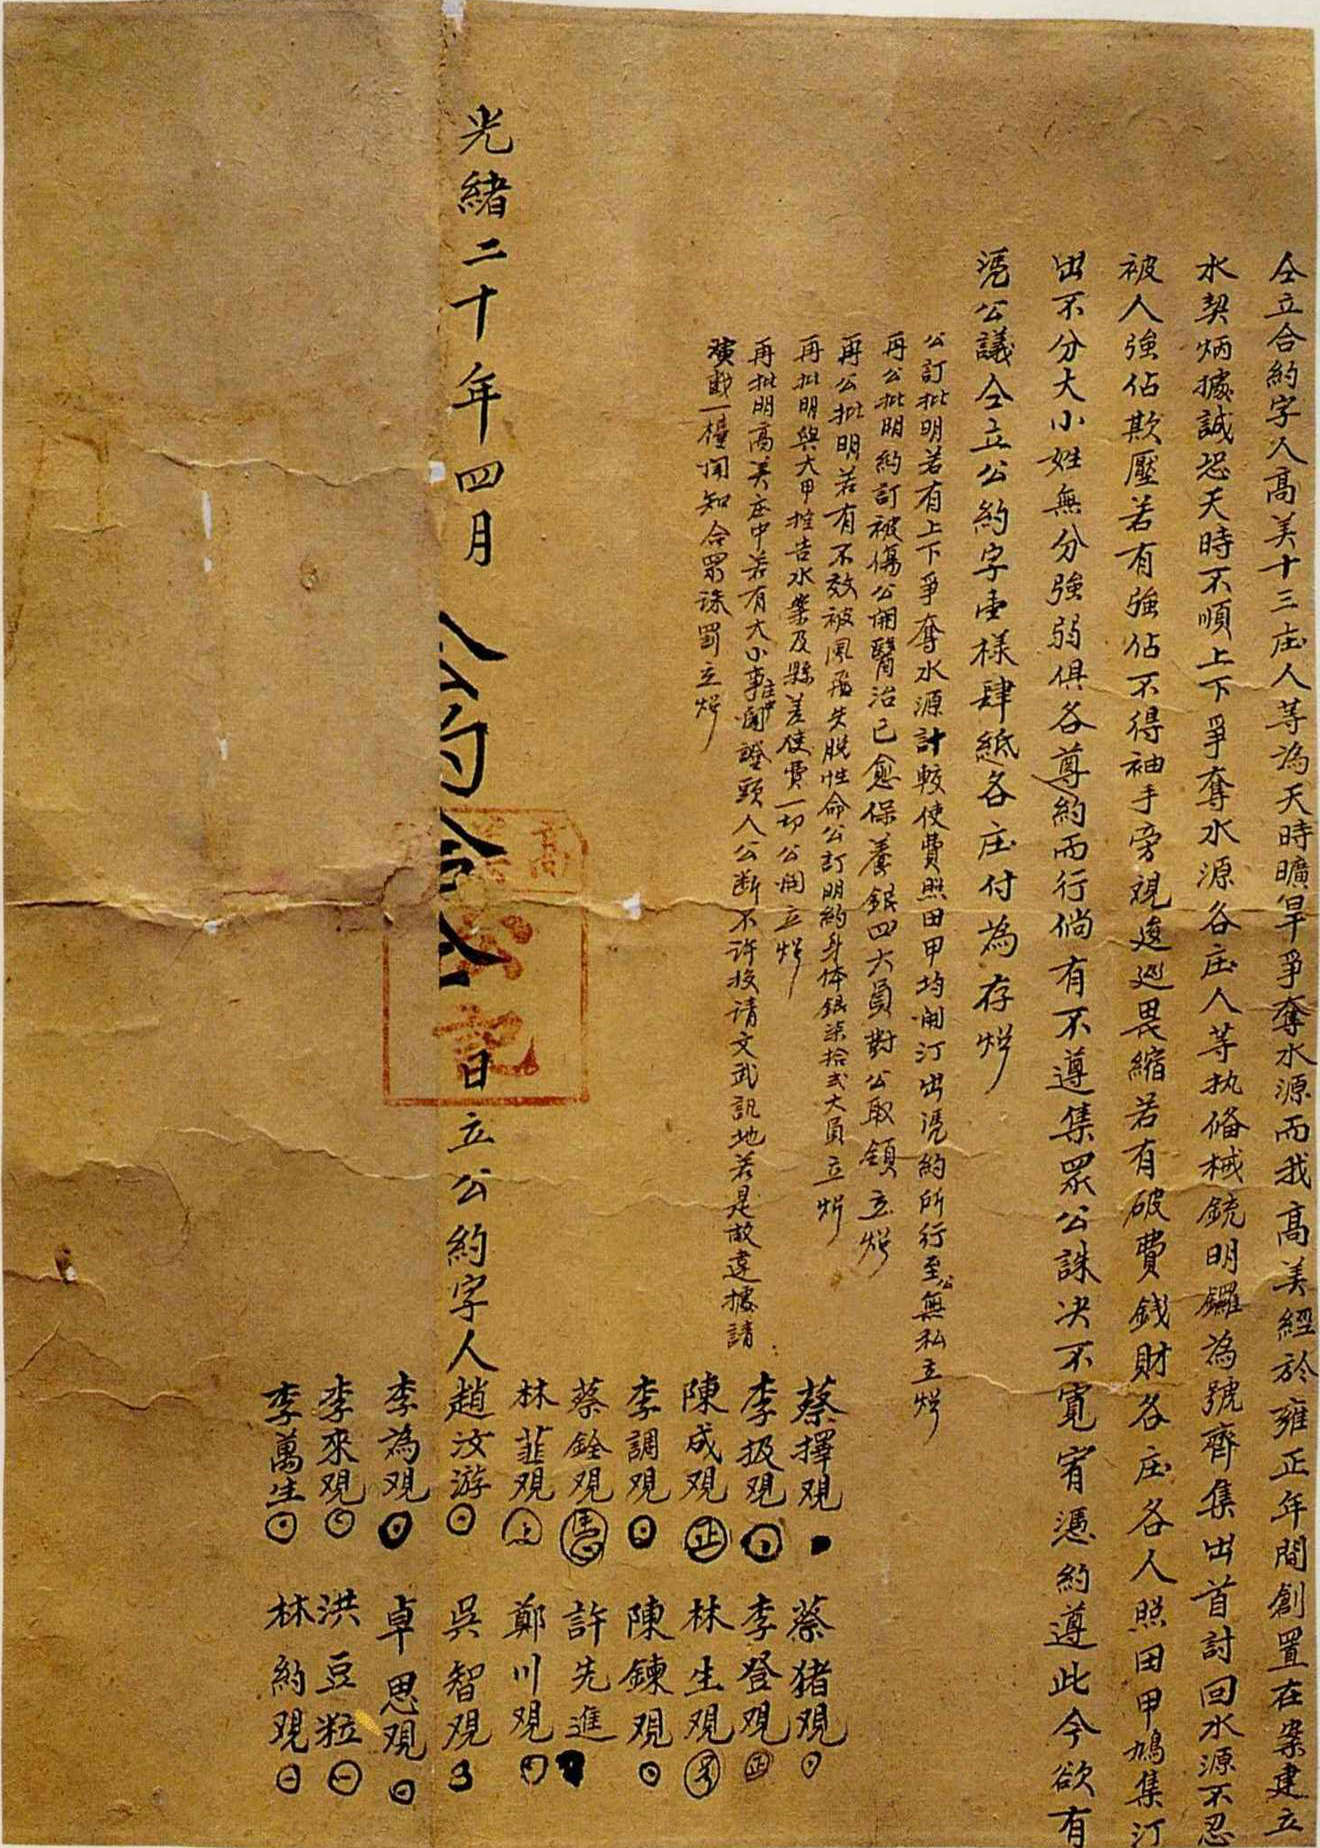 仝立合約字人高美十三庄人等為天時曠旱爭奪水源而我高美經於雍正年間創置在案建立
水契炳據誠恐天時不順上下爭奪水源各庄人等执俻械銃明鑼為號齊集出首討回水源不忍
被人強佔欺壓若有強佔不得袖手旁观逡巡畏縮若有破費錢財各庄各人照田甲鳩集汀
出不分大小姓無分強弱俱各尊約而行倘有不遵集眾公誅决不寬宥憑約遵此今欲有
憑公議仝立公約字壹樣肆紙各庄付為存炤
公訂批明若有上下爭奪水源計較使費照田甲均開汀出憑約所行至公無私立炤
再公批明約訂被傷公開醫治已愈保養銀四大員對公取領立炤
再公批明若有不效被風飛失脫性命公訂明約身体銀柒拾弍大員立炤
再批明與大甲控告水案及縣差使費一切公開立炤
再批明高美庄中若有大小事庄中頭人公断不许投请文武訊地若是故違據請
演戲一檯聞知合眾誅罰立炤
蔡擇观
李扱观
陳成观 正
李調观
蔡銓观
林韮观 上
趙汶游
李為观
李來观
李萬生
蔡猪观
李登观 正
林生观
陳鍊观
許先進
鄭川观
吳智观
卓思观
洪豆粒
林約观
光緒二十年四月 日立公約字人
高
公記